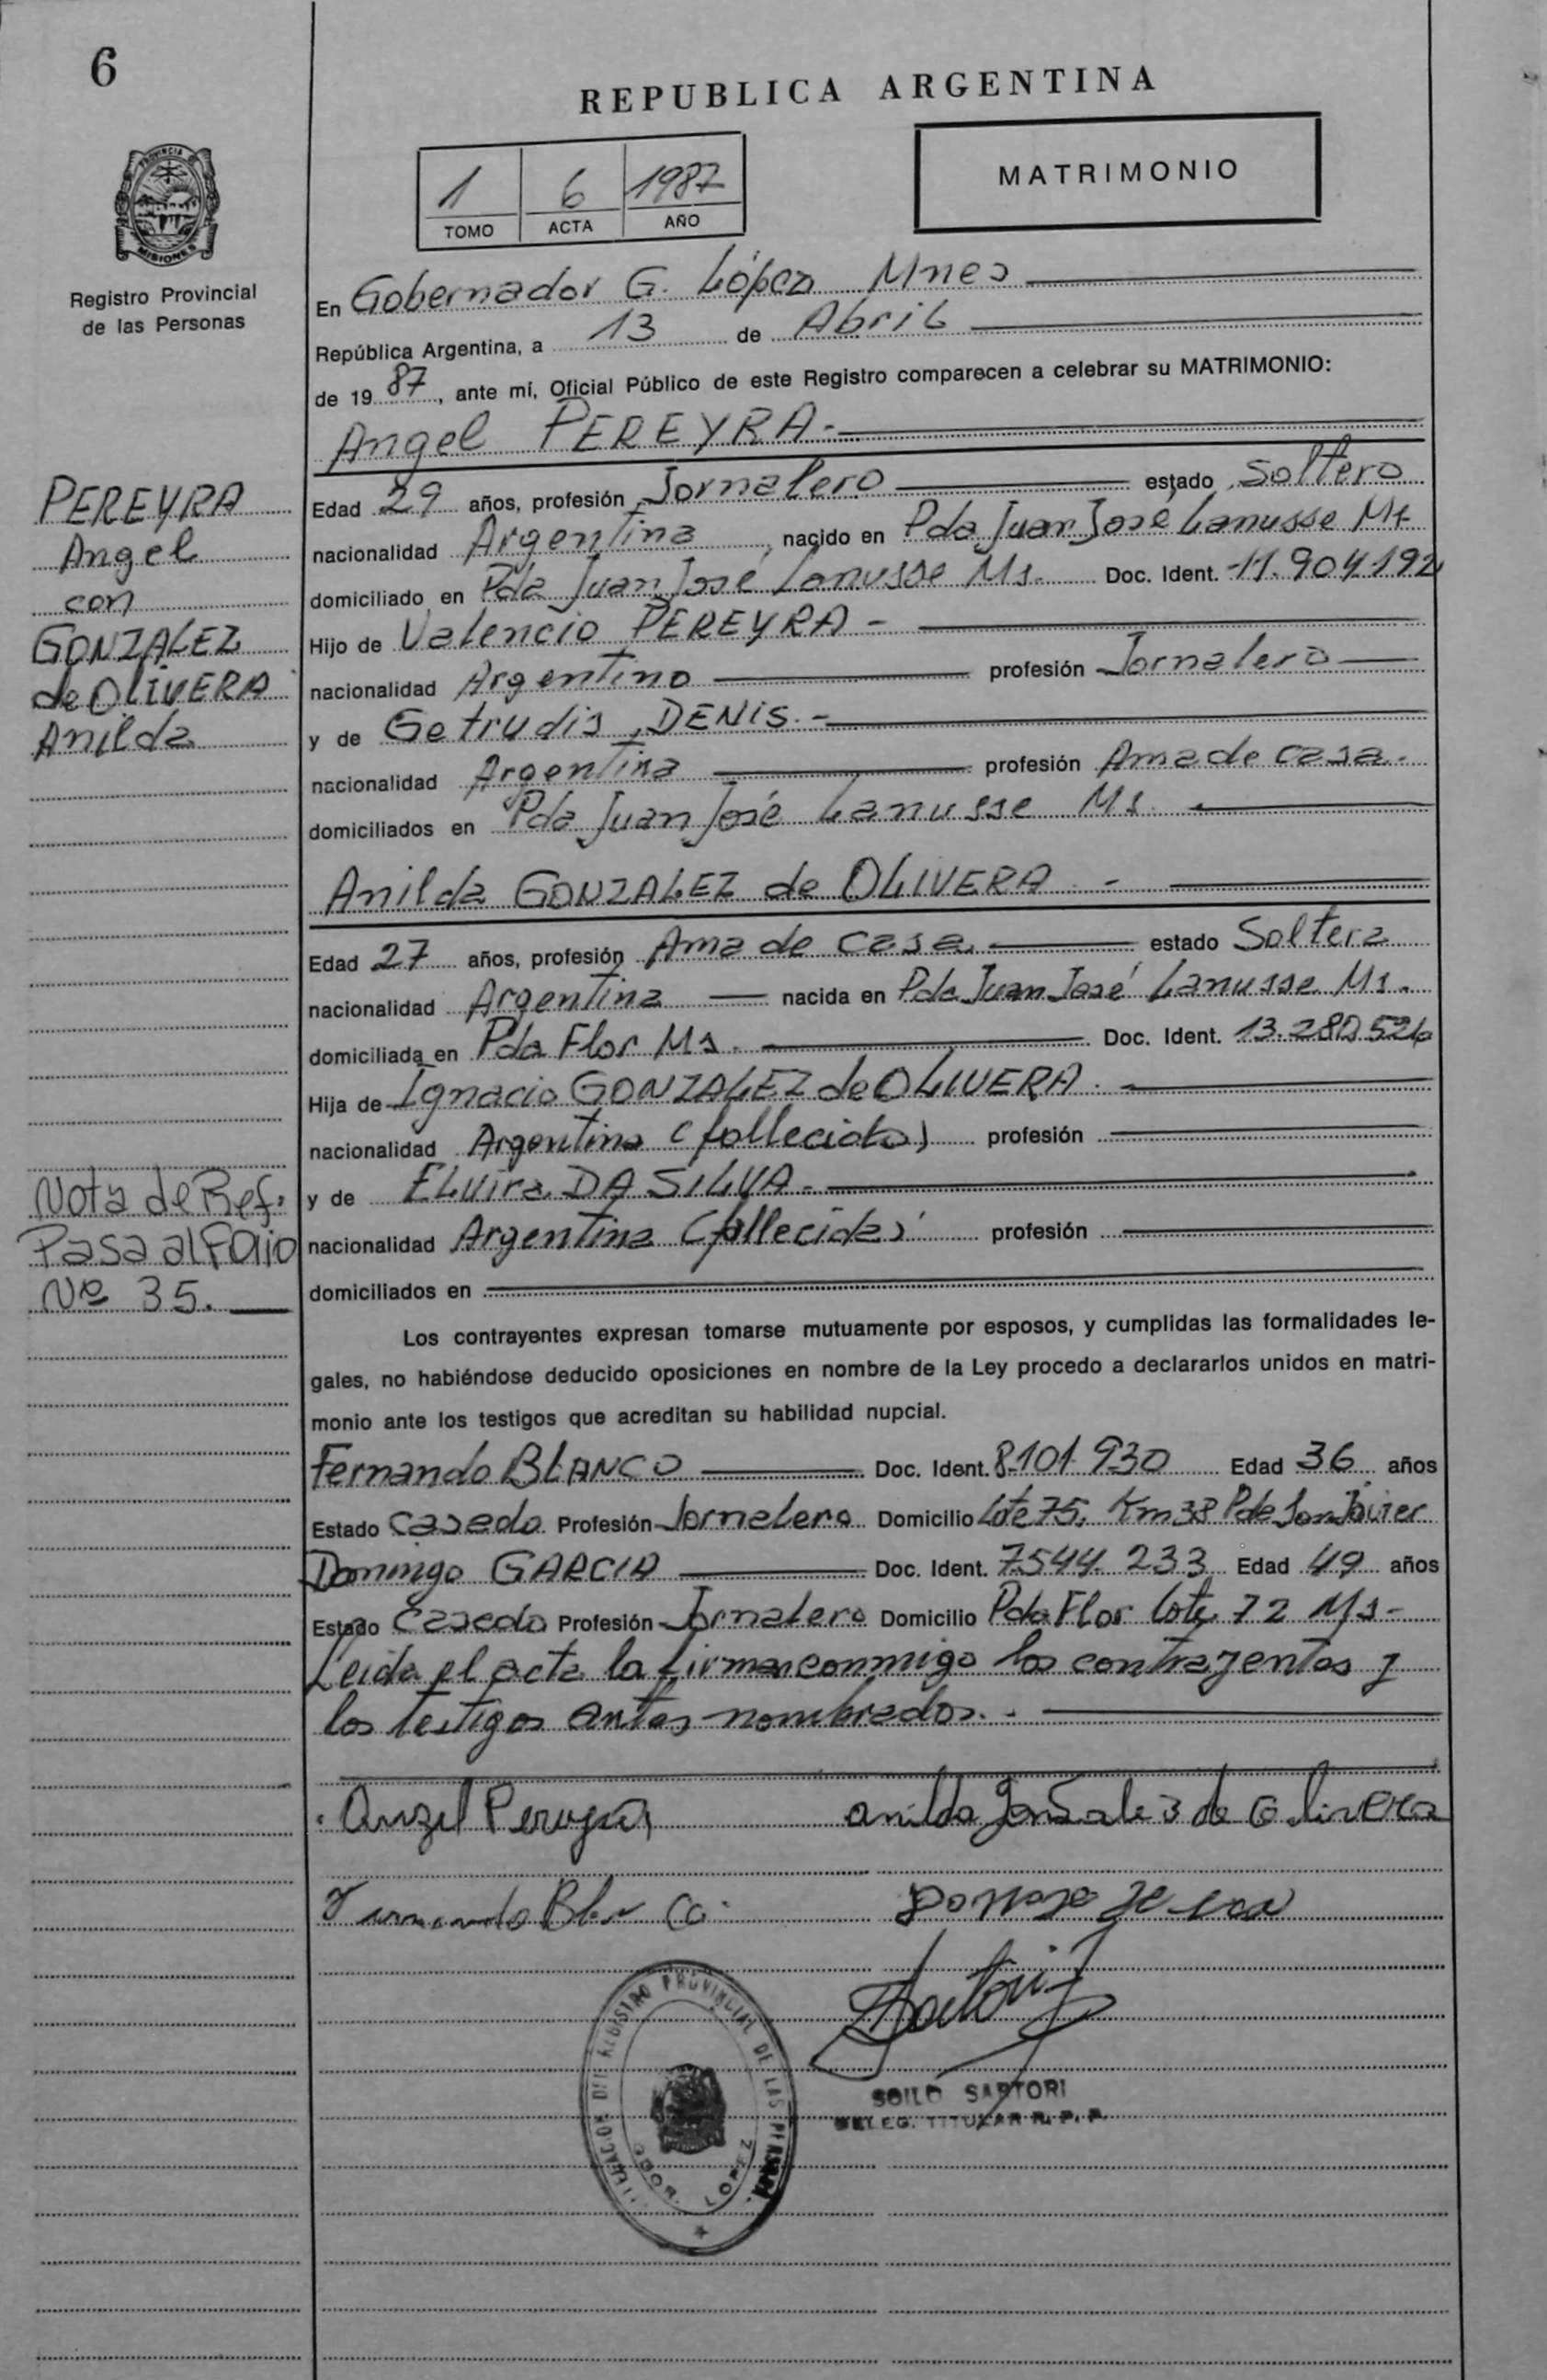 6
REPUBLICA ARGENTINA
MATRIMONIO
1 6 1987
TOMO ACTA AÑO
PROVINCIA DE
MISIONES
Registro Provincial
de las Personas
En Gobernador G. López Mnes
República Argentina, a 13 de Abril
de 1987, ante mí, Oficial Público de este Registro comparecen a celebrar su MATRIMONIO:
Angel PEREYRA.-
Edad 29 años, profesión Jornalero estado Soltero
nacionalidad Argentina, nacido en Pda Juan José Lanusse Ms
domiciliado en Pda Juan José Lanusse Ms. Doc. Ident. 11.904.192
Hijo de Valencio PEREYRA -
nacionalidad Argentino profesión Jornalero
y de Getrudis DENIS.-
nacionalidad Argentina profesión Ama de casa.
domiciliados en Pda Juan José Lanusse Ms.
Anilda GONZALEZ de OLIVERA -
Edad 27 años, profesión Ama de casa estado Soltera
nacionalidad Argentina nacida en Pda Juan José Lanusse Ms.
domiciliada en Pda Flor Ms. Doc. Ident.
Hija de Ignacio GONZALEZ de OLIVERA.
nacionalidad Argentina (fallecido) profesión
y de Elvira DA SILVA.
nacionalidad Argentina (fallecida) profesión
domiciliados en
Los contrayentes expresan tomarse mutuamente por esposos, y cumplidas las formalidades le-
gales, no habiéndose deducido oposiciones en nombre de la Ley procedo a declararlos unidos en matri-
monio ante los testigos que acreditan su habilidad nupcial.
Fernando BLANCO Doc. Ident. 8.101.930 Edad 36 años
Estado Casado Profesión Jornalero Domicilio Lote 75, Km 38 Pda San Javier
Domingo GARCIA Doc. Ident. 7544.233 Edad 49 años
Estado Casado Profesión Jornalero Domicilio Pda Flor lote 72 Ms-
Leida el acta la firman conmigo los contrayentes y
los testigos antes nombrados.-
Angel Pereyra Anilda Gonsalez de Olivera
Fernando Blanco
SOILO SARTORI
DELEG. TITULAR R. P. P.
DEL REGISTRO PROVINCIAL DE LAS PERSONAS
GDOR. LOPEZ
PEREYRA
Angel
con
GONZALEZ
de OLIVERA
Anilda
Nota de Ref.
Pasa al Folio
Nº 35.